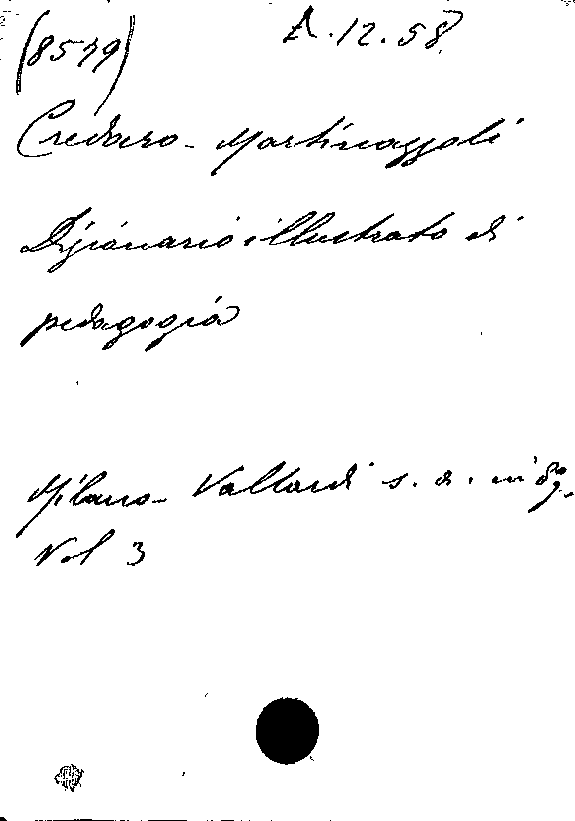 (8579) A.12.58
Credaro - Martinazzoli
Dizionario illustrato di
pedagogia
Milano - Vallardi s. d. in 8°.
Vol 3